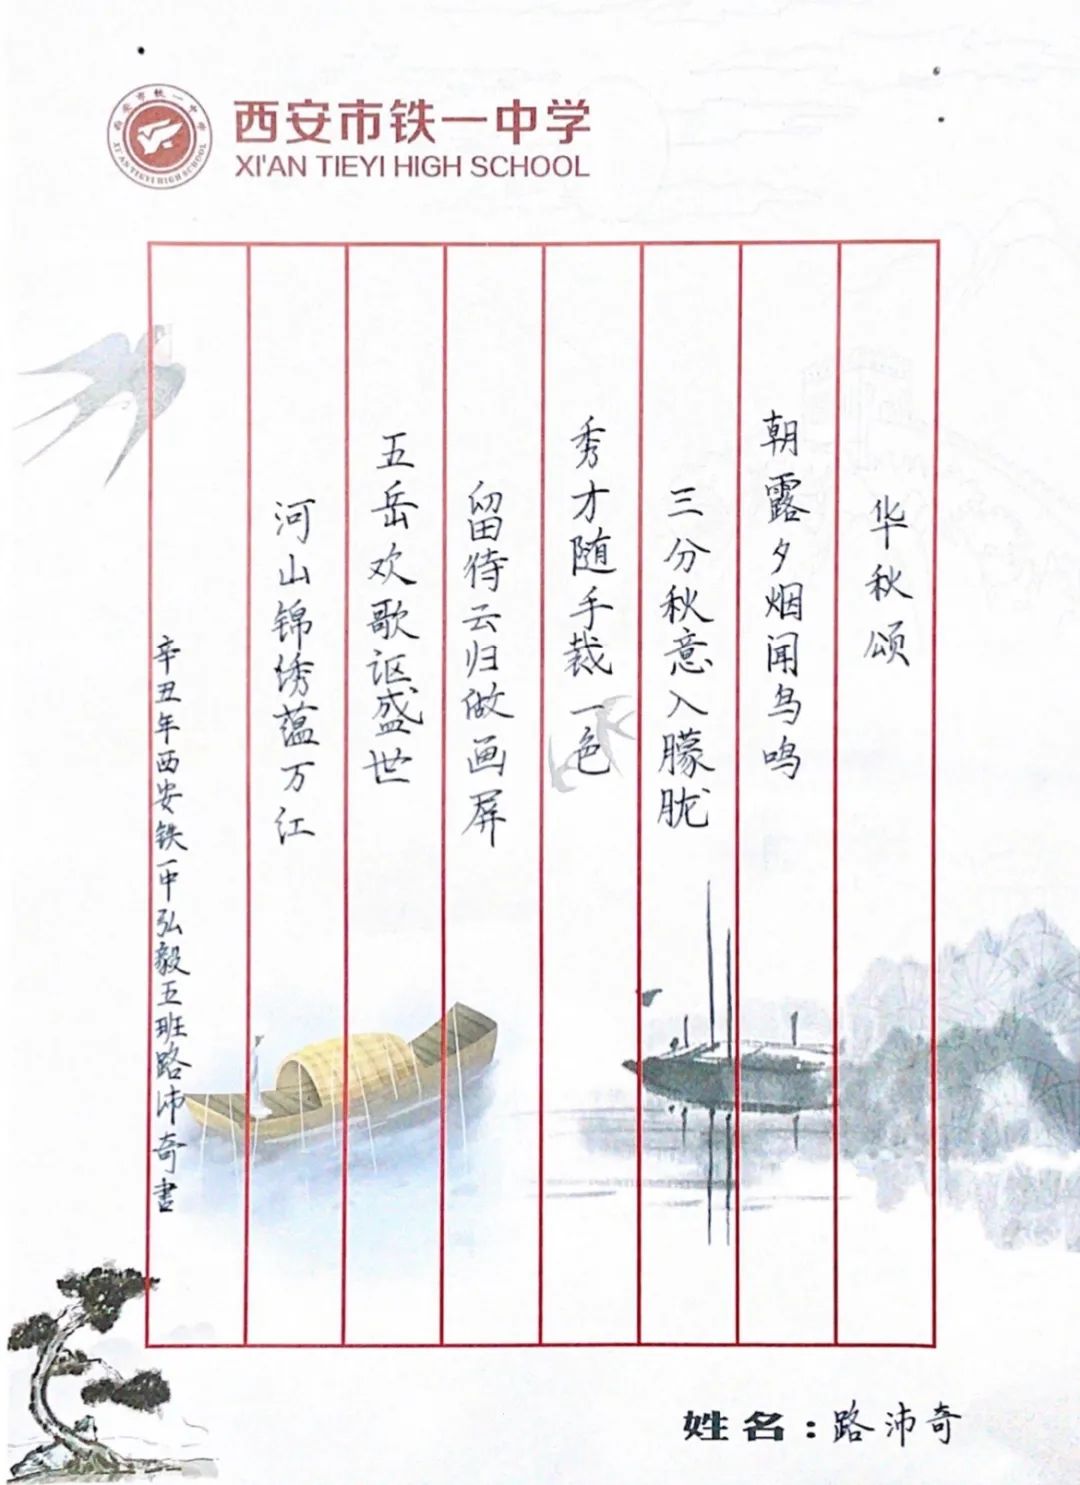 西安市铁一中学
XI'AN TIEYI HIGH SCHOOL
西安市铁一中学
XI'AN TIEYI HIGH SCHOOL
华秋颂
朝露夕烟闻鸟鸣
三分秋意入朦胧
秀才随手裁一色
留待云归做画屏
五岳欢歌讴盛世
河山锦绣蕴万江
辛丑年西安铁一中弘毅五班路沛奇書
姓名：路沛奇